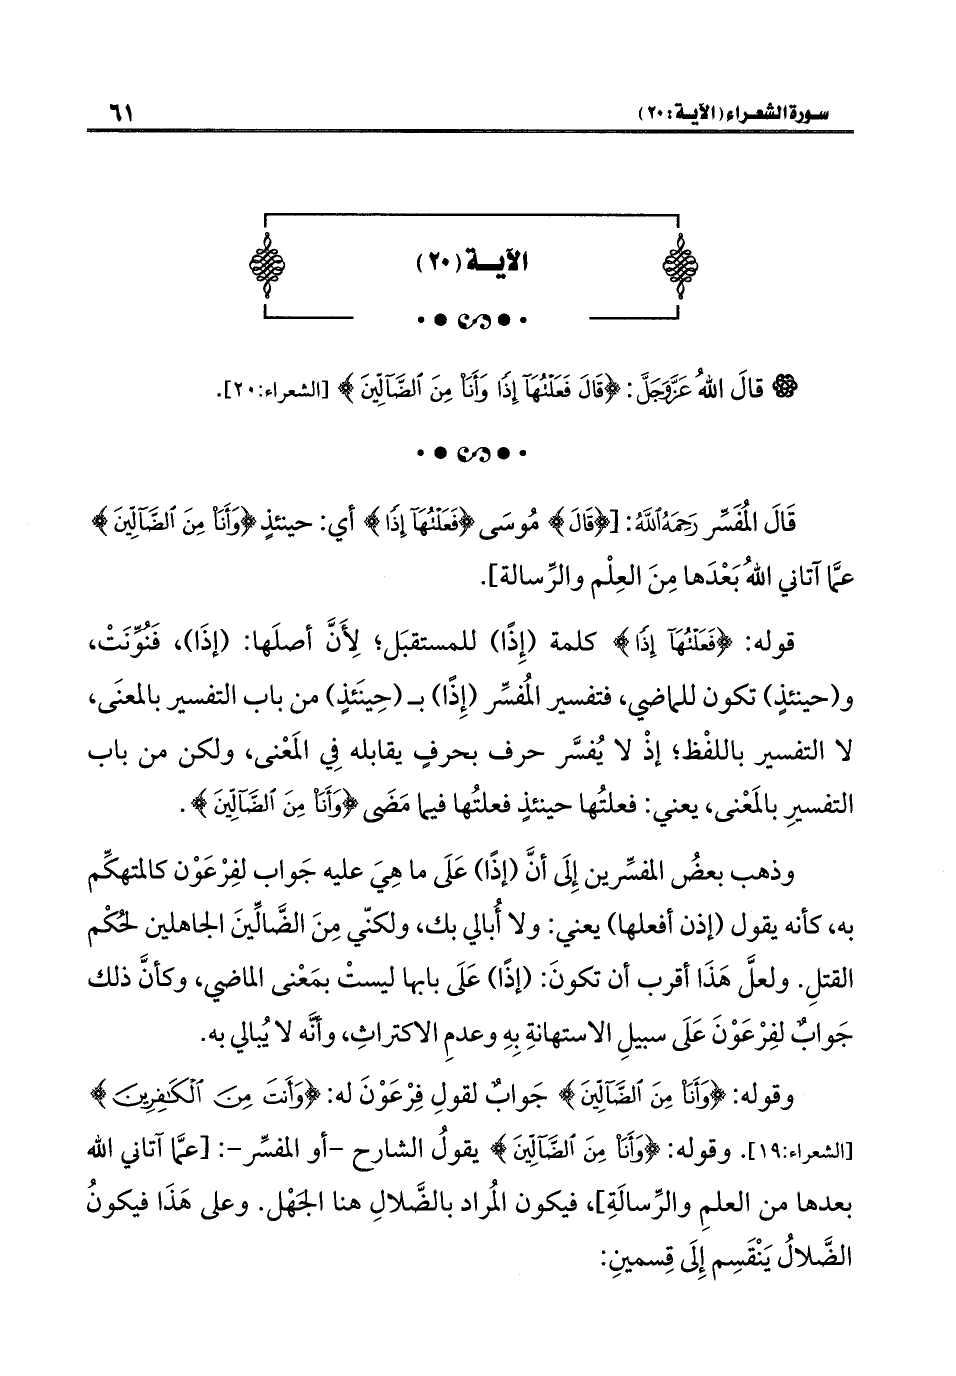 سورة الشعراء (الآية: ٢٠) ٦١
الآية (٢٠)
قالَ اللهُ عَزَّوَجَلَّ: ﴿قَالَ فَعَلْتُهَآ إِذًا وَأَنَا۠ مِنَ ٱلضَّآلِّينَ﴾ [الشعراء:٢٠].
قَالَ المُفَسِّر رَحِمَهُ ٱللَّهُ: [﴿قَالَ﴾ مُوسَى ﴿فَعَلْتُهَآ إِذًا﴾ أي: حينئذٍ ﴿وَأَنَا۠ مِنَ ٱلضَّآلِّينَ﴾
عمَّا آتاني اللهُ بَعْدَها مِنَ العِلْم والرِّسالة].
قوله: ﴿فَعَلْتُهَآ إِذًا﴾ كلمة (إِذًا) للمستقبَل؛ لِأَنَّ أصلَها: (إذَا)، فَنُوِّنَتْ،
و(حينئذٍ) تكون للماضي، فتفسير المُفسِّر (إِذًا) بـ (حِينَئذٍ) من باب التفسير بالمعنَى،
لا التفسير باللفْظ؛ إذْ لا يُفسَّر حرف بحرفٍ يقابله فِي المَعْنى، ولكن من باب
التفسيرِ بالمَعْنى، يعني: فعلتُها حينئذٍ فعلتُها فيما مَضَى ﴿وَأَنَا۠ مِنَ ٱلضَّآلِّينَ﴾.
وذهب بعضُ المفسِّرين إِلَى أنَّ (إذًا) عَلَى ما هِيَ عليه جَواب لفِرْعَوْن كالمتهكِّم
به، كأنه يقول (إذن أفعلها) يعني: ولا أُبالي بك، ولكنّي مِنَ الضَّالِّينَ الجاهلين لحُكْم
القتلِ. ولعلَّ هَذَا أقرب أن تكونَ: (إذًا) عَلَى بابها ليستْ بمَعْنى الماضي، وكأنَّ ذلك
جَوابٌ لفِرْعَوْنَ عَلَى سبيلِ الاستهانةِ بِهِ وعدمِ الاكتراثِ، وأنَّه لا يُبالي به.
وقوله: ﴿وَأَنَا۠ مِنَ ٱلضَّآلِّينَ﴾ جَوابٌ لقولِ فِرْعَوْنَ له: ﴿وَأَنتَ مِنَ ٱلْكَٰفِرِينَ﴾
[الشعراء:١٩]. وقوله: ﴿وَأَنَا۠ مِنَ ٱلضَّآلِّينَ﴾ يقولُ الشارح -أو المفسِّر-: [عمَّا آتاني الله
بعدها من العلمِ والرِّسالَةِ]، فيكون المُراد بالضَّلالِ هنا الجَهْل. وعلى هَذَا فيكونُ
الضَّلالُ يَنْقَسِم إِلَى قِسمينِ: